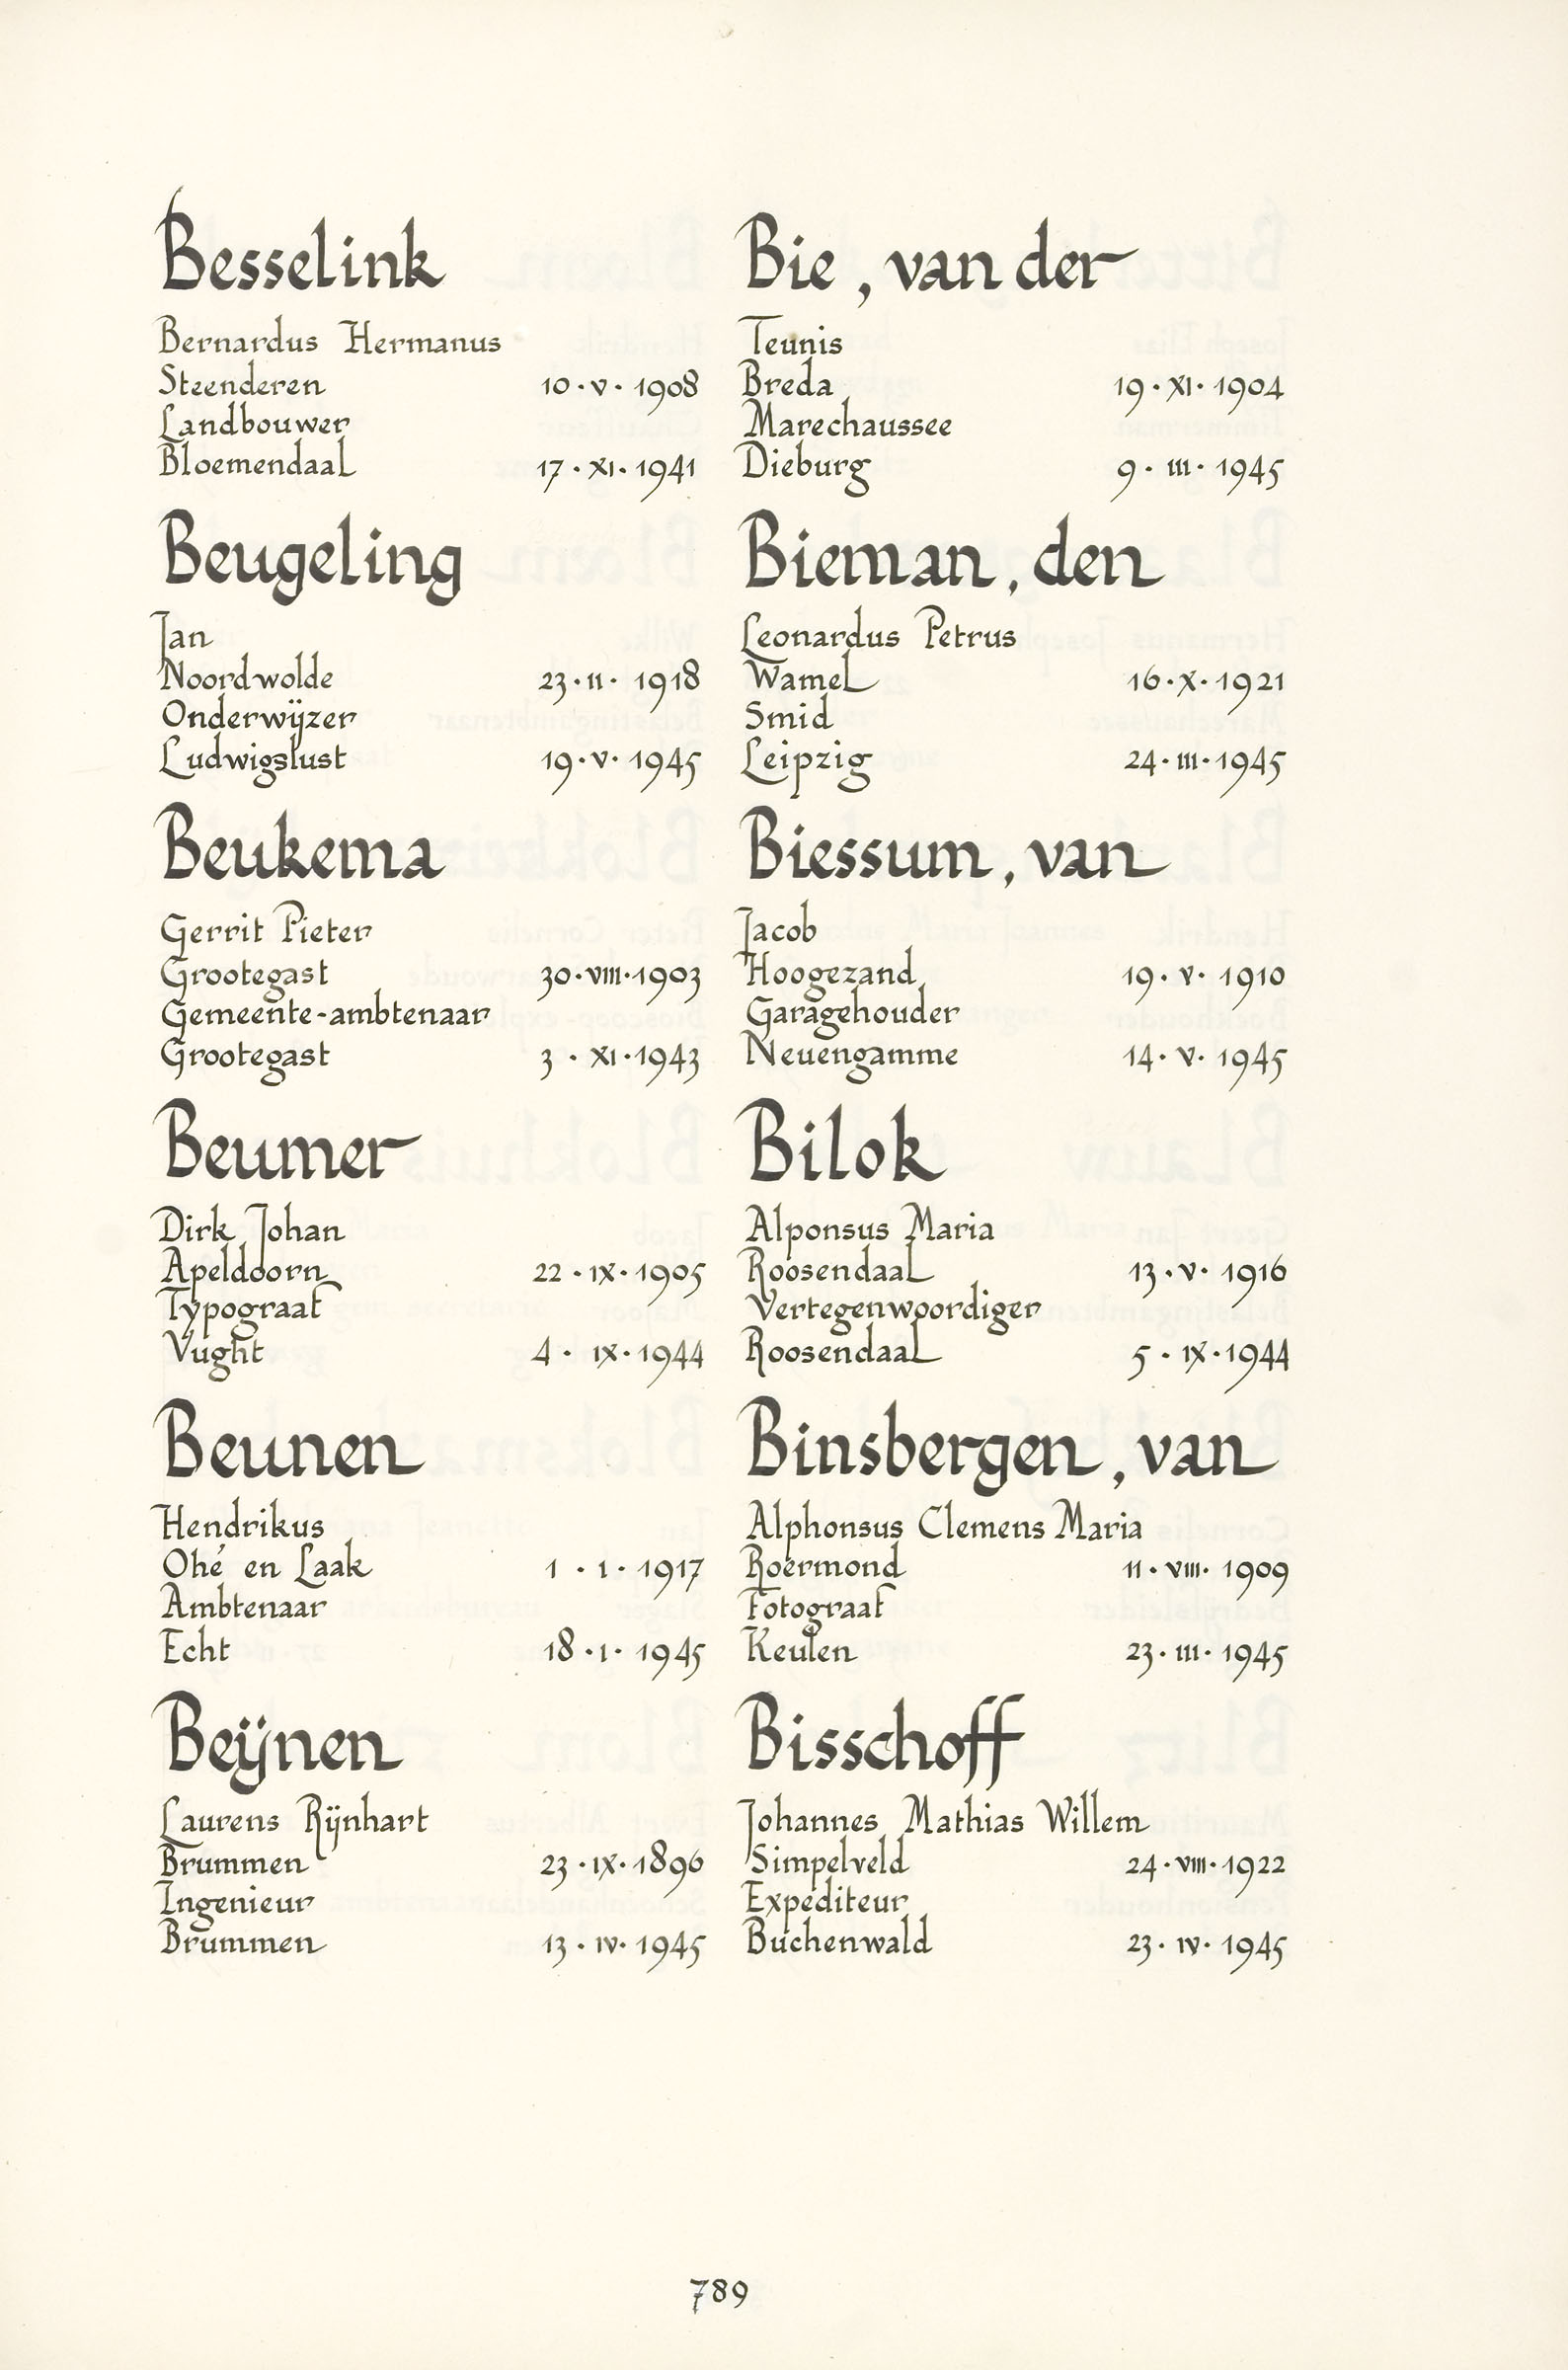 Besselink
Bernardus Hermanus
Steenderen 10·V·1908
Landbouwer
Bloemendaal 17·XI·1941
Beugeling
Jan
Noordwolde 23·II·1918
Onderwijzer
Ludwigslust 19·V·1945
Beukema
Gerrit Pieter
Grootegast 30·VIII·1903
Gemeente-ambtenaar
Grootegast 3·XI·1943
Beumer
Dirk Johan
Apeldoorn 22·IX·1905
Typograaf
Vught 4·IX·1944
Beunen
Hendrikus
Ohé en Laak 1·I·1917
Ambtenaar
Echt 18·I·1945
Beijnen
Laurens Rijnhart
Brummen 23·IX·1896
Ingenieur
Brummen 13·IV·1945
Bie, van der
Teunis
Breda 19·XI·1904
Marechaussee
Dieburg 9·III·1945
Bieman, den
Leonardus Petrus
Wamel 16·X·1921
Smid
Leipzig 24·III·1945
Biessum, van
Jacob
Hoogezand 19·V·1910
Garagehouder
Neuengamme 14·V·1945
Bilok
Alponsus Maria
Roosendaal 13·V·1916
Vertegenwoordiger
Roosendaal 5·IX·1944
Binsbergen, van
Alphonsus Clemens Maria
Roermond 11·VIII·1909
Fotograaf
Keulen 23·III·1945
Bisschoff
Johannes Mathias Willem
Simpelveld 24·VIII·1922
Expediteur
Buchenwald 23·IV·1945
789